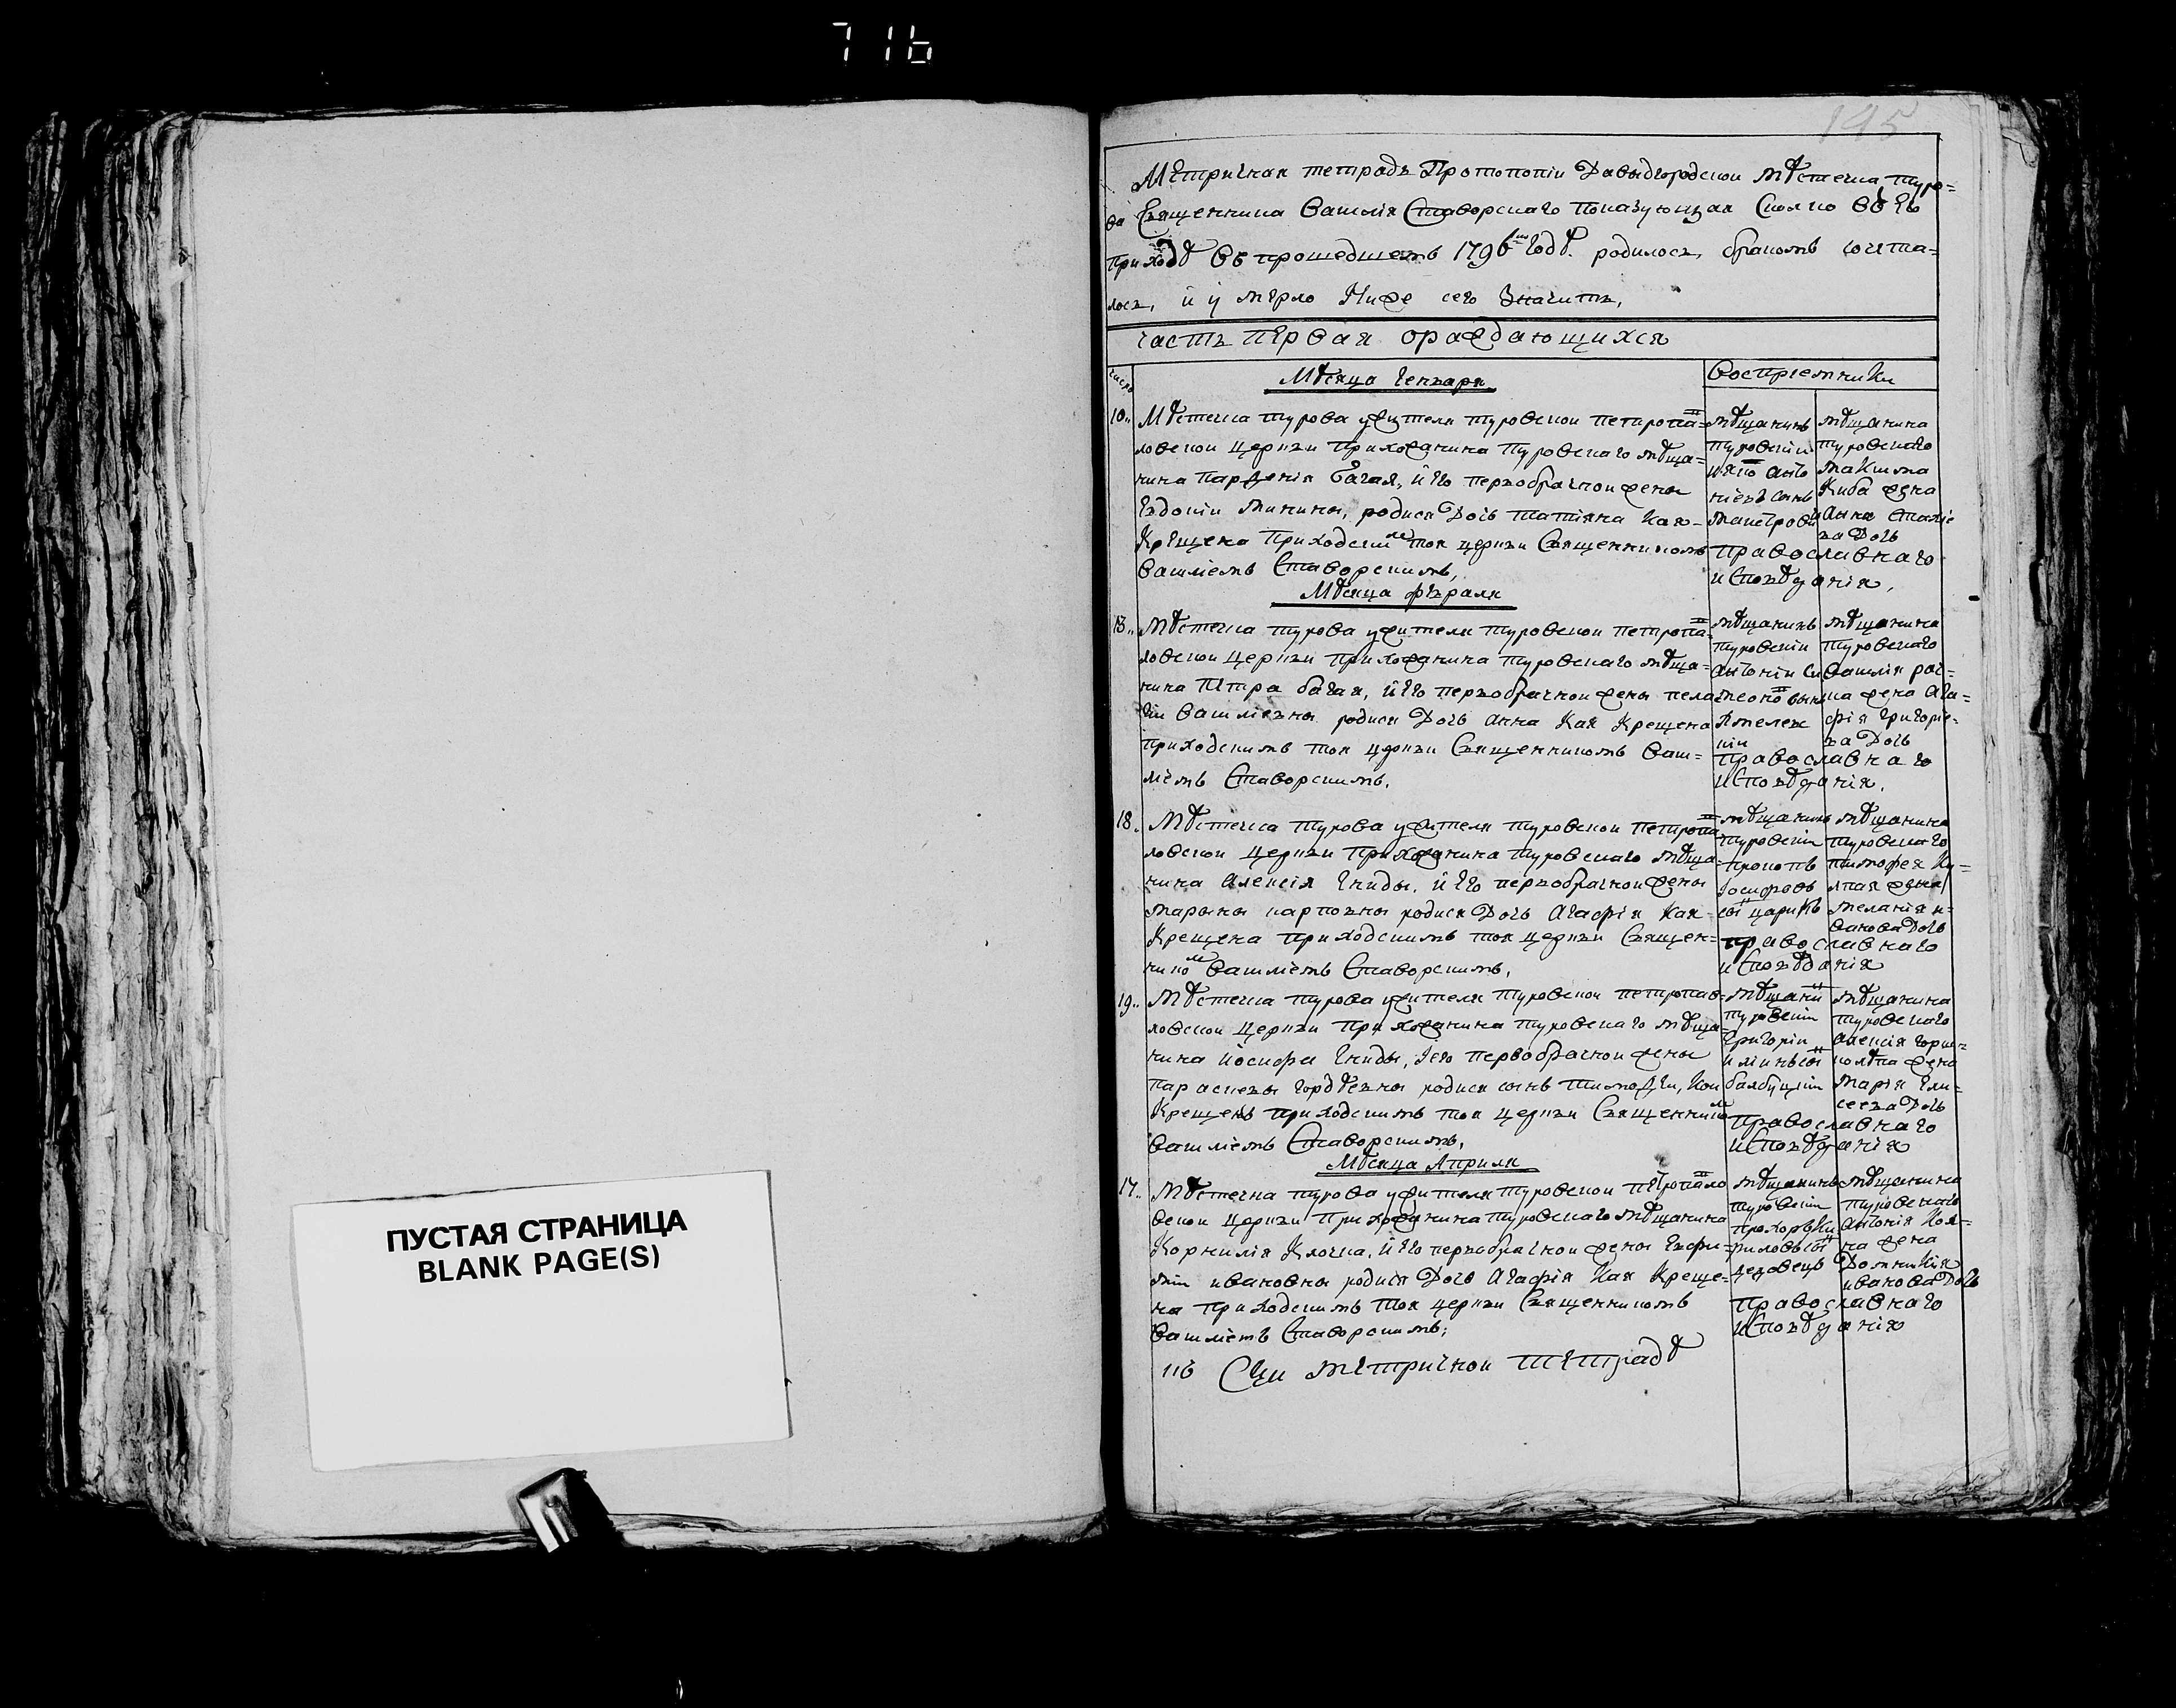 716
195
Метричная тетрадь Протопопіи Давыдгородскои мѣстечка Туро=
ва Священника Василія Ставорскаго показующая сколко въ его
приходѣ въ прошедшемъ 1796мъ годѣ. родилось, бракомъ сочета=
лось, и умерло ниже сего значитъ,
часть первая ораждающихся
число
Мѣсяца генваря
Воспріемники
10..
Мѣстечка турова жителя туровскои петропа=
ловскои церкви прихожанина туровскаго мѣща=
нина Парѳенія Багая, и его первобрачнои жены
Евдокіи Минины, родися дочь татіяна кая
крещена приходскимъ тоя церкви священникомъ
Василіемъ Ставорскимъ,
мѣщанинъ
туровскіи
сынъ
мѣщанина
туровскаго
максима
Киба жена
Анна
ва дочь
православнаго
исповѣданія,
Мѣсяца февраля
13..
Мѣстечка турова жителя туровскои петропа=
ловскои церкви прихожанина туровскаго мѣща=
нина Петра багая, и его первобрачнои жены пела
гіи Василіевны родися дочь анна кая крещена
приходскимъ тоя церкви священникомъ Васи=
ліемъ Ставорскимъ.
мѣщанинъ
туровскіи
антоніи
мѣщанина
туровскаго
Василія
жена ага=
фія григорие=
ва дочь
православнаго
исповѣданія.
18.
Мѣстечка турова жителя туровскои петропа
ловскои церкви прихожанина туровскаго мѣща=
нина Алексія гниды, и его первобрачнои жены
марыны карповны родися дочь агафія кая
крещена приходскимъ тоя церкви священ=
никомъ Василіемъ Ставорскимъ,
мѣщанинъ
туровскіи
прокопъ
іосифовъ
сы царикъ
мѣщанина
туровскаго
тимофея
жена
меланія и=
ванова дочь
православнаго
исповѣданія
19..
Мѣстечка турова жителя туровскои петропав=
ловскои церкви прихожанина туровскаго мѣща=
нина Іосифа гниды, его первобрачнои жены
параскевы гордѣевны родися сынъ тимоѳеи, кои
крещенъ приходскимъ тоя церкви священникомъ
Василіемъ Ставорскимъ,
мѣщани
туровскіи
григоріи
мѣщанина
туровскаго
алексія
жена
марія ели=
сеева дочь
православнаго
исповѣданія
Мѣсяца Априля
17..
Мѣстечка турова жителя туровскои петропало
вскои церкви прихожанина туровскаго мѣщанина
Корнилія Клочка, и его первобрачнои жены евфи=
міи ивановны родися дочь агафія кая креще=
на приходскимъ тоя церкви священникомъ
Василіемъ Ставорскимъ;
мѣщанинъ
туровскіи
прохоръ ки
риловъ сы
мѣщанина
туровскаго
антонія
жена
Домникія
иванова дочь
православнаго
исповѣданія
метричнои тетрадѣ
ПУСТАЯ СТРАНИЦА
BLANK PAGE(S)